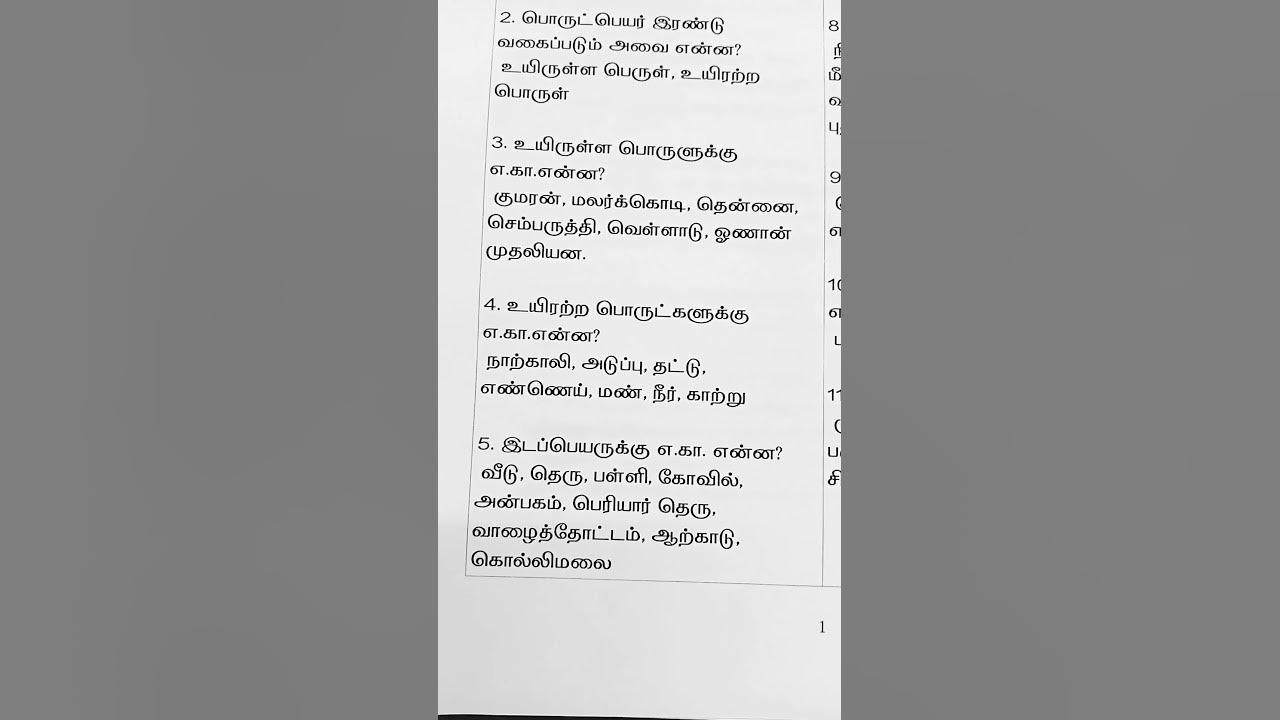 2. பொருட்பெயர் இரண்டு
வகைப்படும் அவை என்ன?
உயிருள்ள பெருள், உயிரற்ற
பொருள்
3. உயிருள்ள பொருளுக்கு
எ.கா.என்ன?
குமரன், மலர்க்கொடி, தென்னை,
செம்பருத்தி, வெள்ளாடு, ஓணான்
முதலியன.
4. உயிரற்ற பொருட்களுக்கு
எ.கா.என்ன?
நாற்காலி, அடுப்பு, தட்டு,
எண்ணெய், மண், நீர், காற்று
5. இடப்பெயருக்கு எ.கா. என்ன?
வீடு, தெரு, பள்ளி, கோவில்,
அன்பகம், பெரியார் தெரு,
வாழைத்தோட்டம், ஆற்காடு,
கொல்லிமலை
8
9
10
11
1